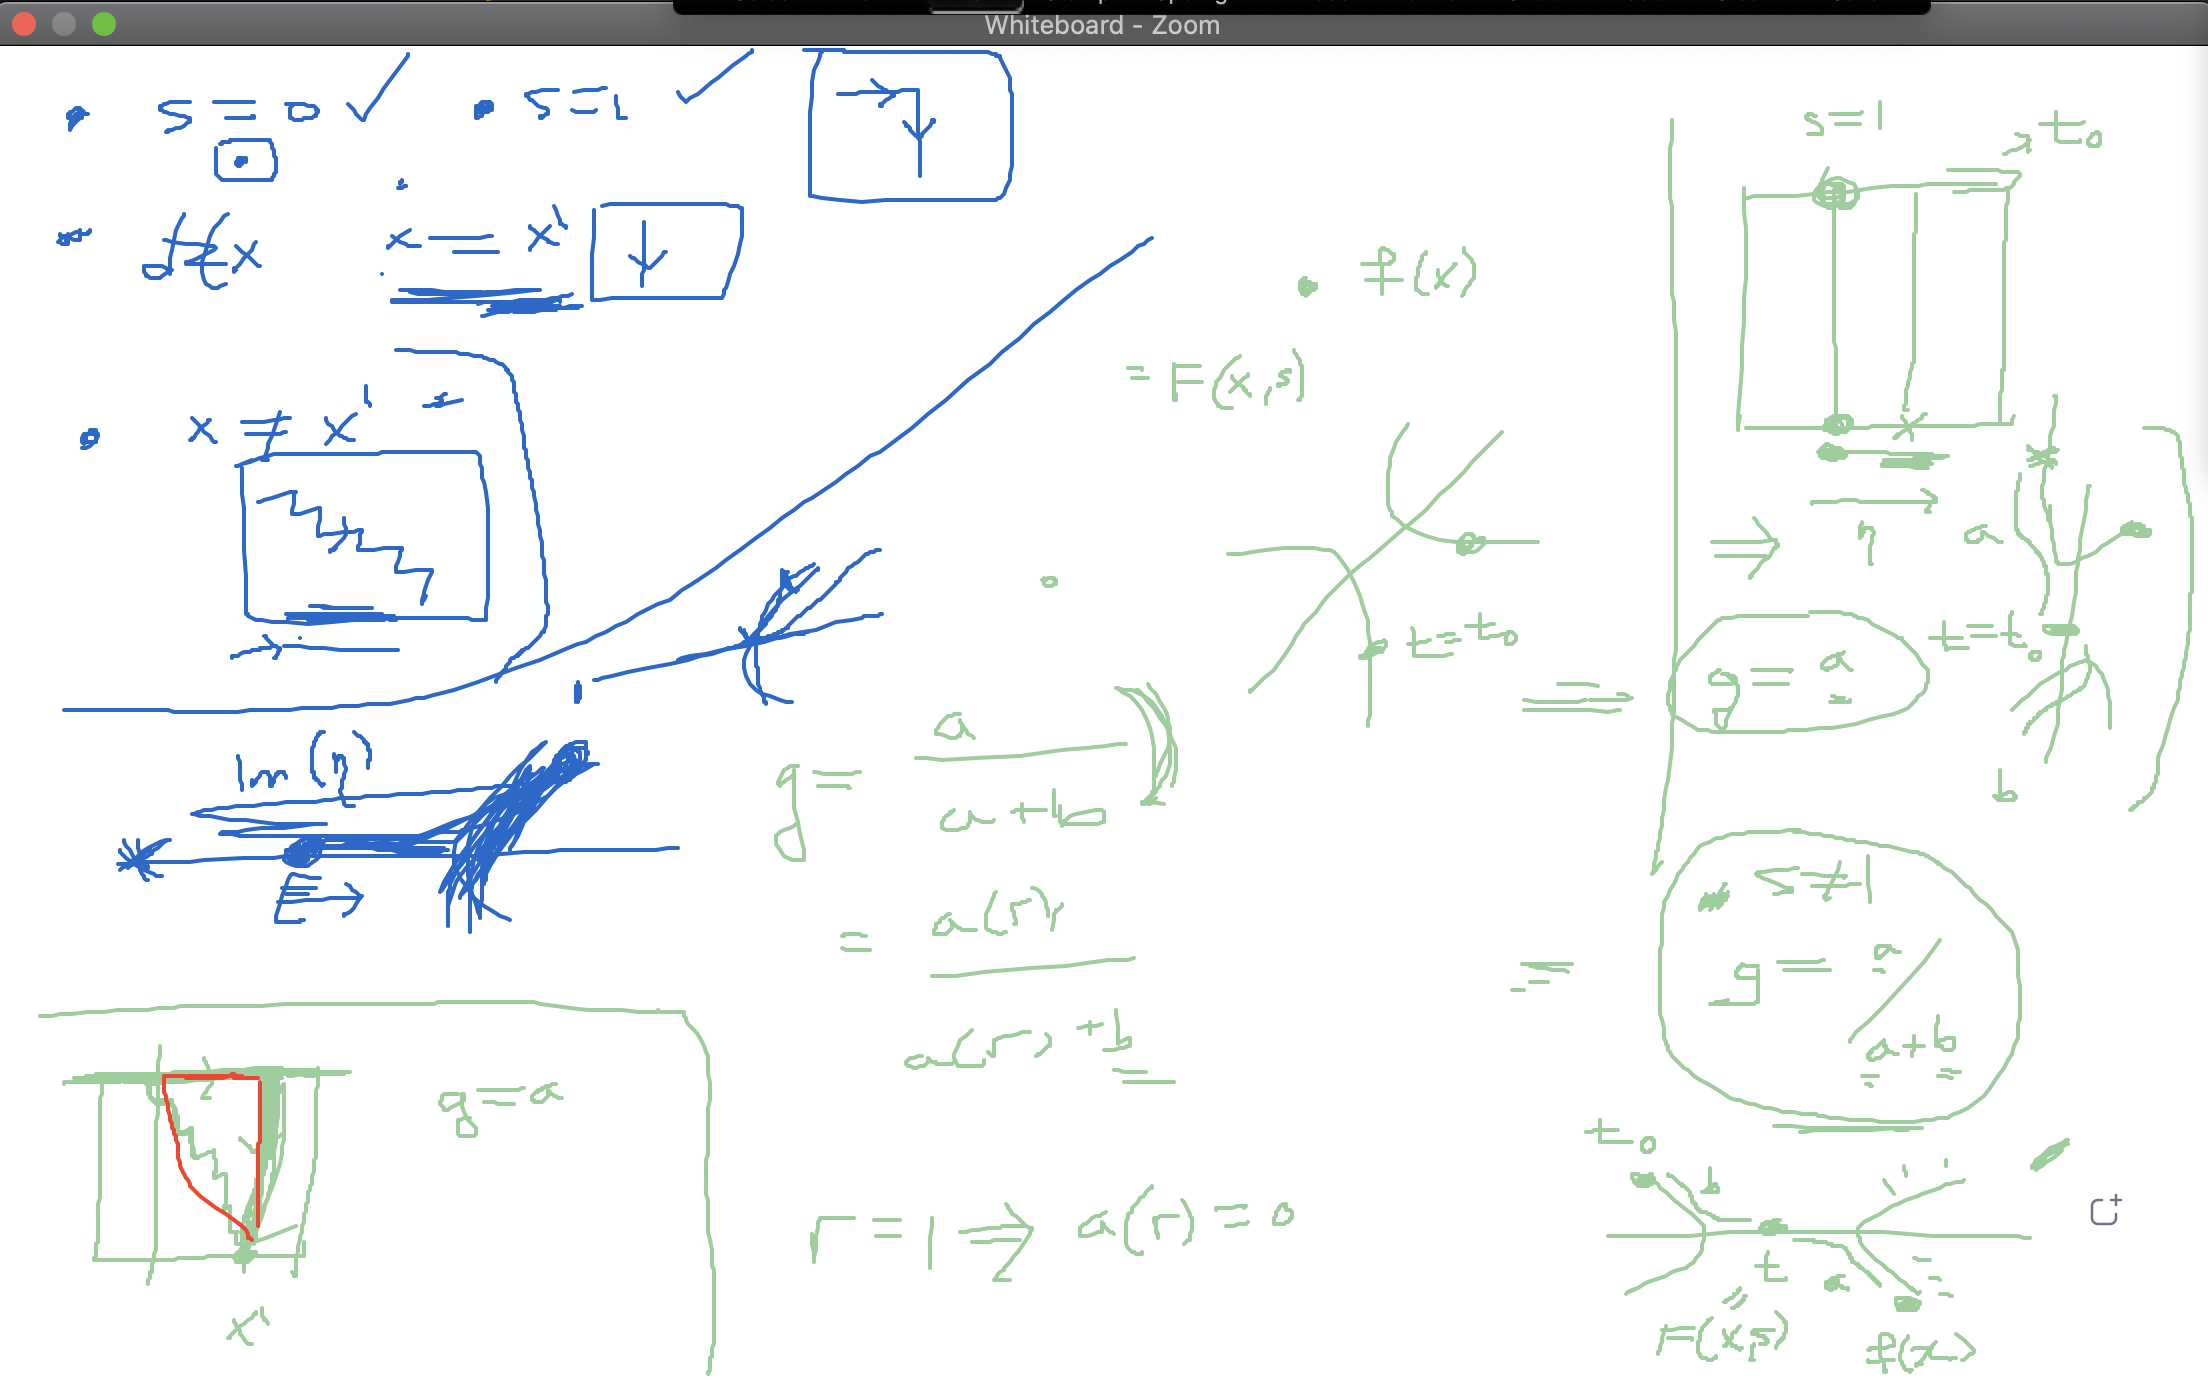 Whiteboard - Zoom
s = 0 ✓
s = 1 ✓
x = x'
x ≠ x'
Im(η)
g = a
x'
f(x)
= F(x,s)
t = t₀
g = a / a + b
= a(r) / a(r) + b
r = 1 ⇒ a(r) = 0
s = 1
t₀
x
⇒ η
a
t = t₀
g = a
b
s ≠ 1
g = a / a + b
t₀
b
t
a
=
F(x,s)
f(x)